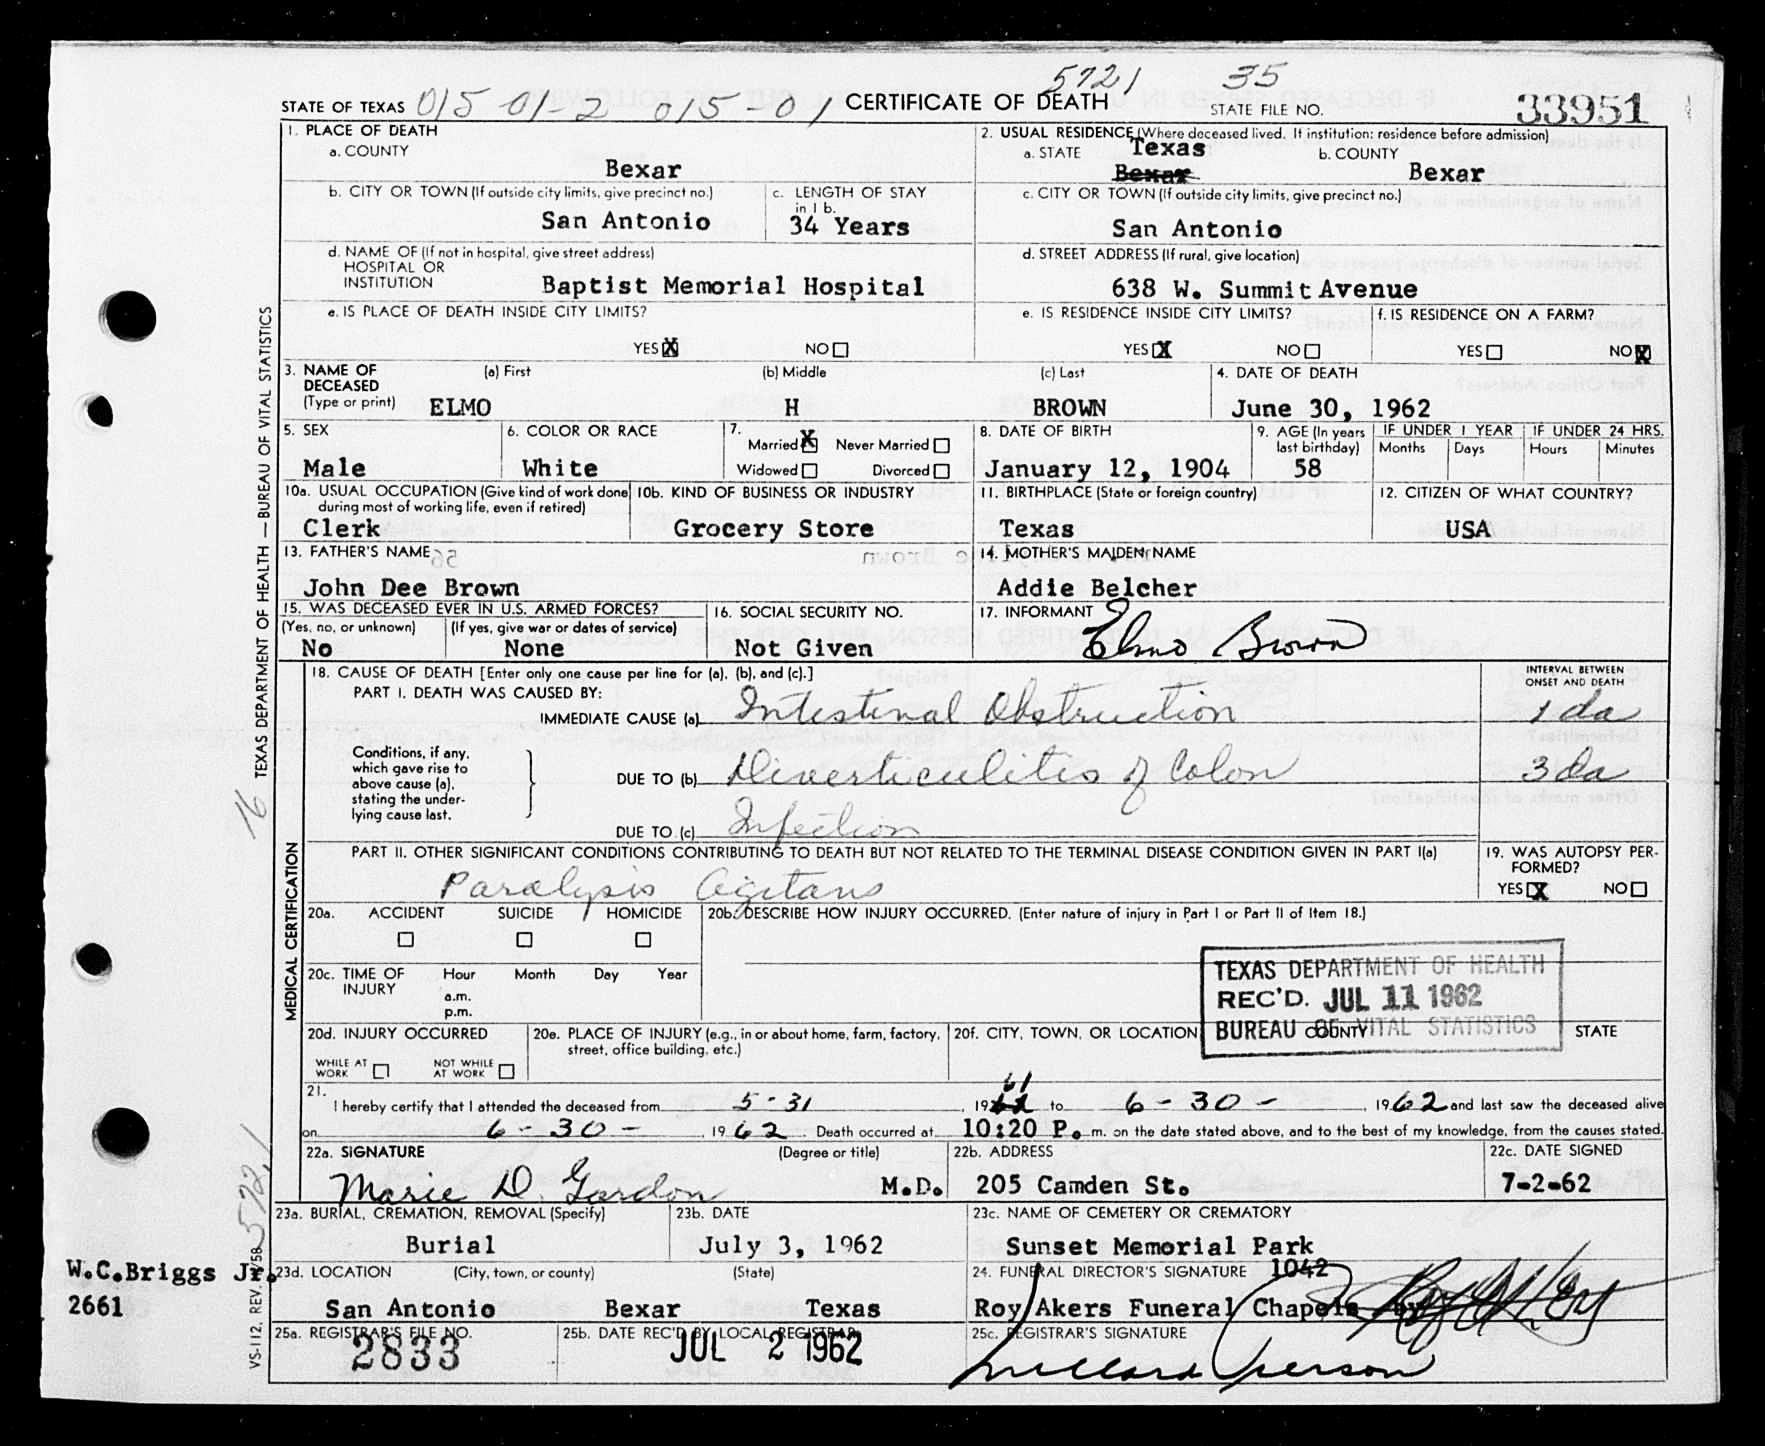 5721 35
STATE OF TEXAS 015-01-2 015-01 CERTIFICATE OF DEATH STATE FILE NO. 33951
1. PLACE OF DEATH
a. COUNTY
Bexar
2. USUAL RESIDENCE (Where deceased lived. If institution: residence before admission)
a. STATE Texas b. COUNTY
Bexar Bexar
b. CITY OR TOWN (If outside city limits, give precinct no.)
San Antonio
c. LENGTH OF STAY
in 1 b.
34 Years
c. CITY OR TOWN (If outside city limits, give precinct no.)
San Antonio
d. NAME OF (If not in hospital, give street address)
HOSPITAL OR
INSTITUTION Baptist Memorial Hospital
d. STREET ADDRESS (If rural, give location)
638 W. Summit Avenue
e. IS PLACE OF DEATH INSIDE CITY LIMITS?
YES X NO
e. IS RESIDENCE INSIDE CITY LIMITS?
YES X NO
f. IS RESIDENCE ON A FARM?
YES NO X
3. NAME OF DECEASED (Type or print)
(a) First (b) Middle (c) Last
ELMO H BROWN
4. DATE OF DEATH
June 30, 1962
5. SEX
Male
6. COLOR OR RACE
White
7.
Married X Never Married
Widowed Divorced
8. DATE OF BIRTH
January 12, 1904
9. AGE (In years
last birthday)
58
IF UNDER 1 YEAR
Months Days
IF UNDER 24 HRS.
Hours Minutes
10a. USUAL OCCUPATION (Give kind of work done
during most of working life, even if retired)
Clerk
10b. KIND OF BUSINESS OR INDUSTRY
Grocery Store
11. BIRTHPLACE (State or foreign country)
Texas
12. CITIZEN OF WHAT COUNTRY?
USA
13. FATHER'S NAME
John Dee Brown
14. MOTHER'S MAIDEN NAME
Addie Belcher
15. WAS DECEASED EVER IN U.S. ARMED FORCES?
(Yes, no, or unknown) (If yes, give war or dates of service)
No None
16. SOCIAL SECURITY NO.
Not Given
17. INFORMANT
Elmo Brown
18. CAUSE OF DEATH [Enter only one cause per line for (a), (b), and (c).]
PART I. DEATH WAS CAUSED BY:
IMMEDIATE CAUSE (a) Intestinal Obstruction
INTERVAL BETWEEN
ONSET AND DEATH
1 da
Conditions, if any,
which gave rise to
above cause (a),
stating the under-
lying cause last.
DUE TO (b) Diverticulitis of Colon 3 da
DUE TO (c) Infection
PART II. OTHER SIGNIFICANT CONDITIONS CONTRIBUTING TO DEATH BUT NOT RELATED TO THE TERMINAL DISEASE CONDITION GIVEN IN PART I(a)
Paralysis Agitans
19. WAS AUTOPSY PER-
FORMED?
YES X NO
20a. ACCIDENT SUICIDE HOMICIDE
20b. DESCRIBE HOW INJURY OCCURRED. (Enter nature of injury in Part I or Part II of Item 18.)
20c. TIME OF
INJURY
Hour Month Day Year
a.m.
p.m.
TEXAS DEPARTMENT OF HEALTH
REC'D. JUL 11 1962
BUREAU OF VITAL STATISTICS
20d. INJURY OCCURRED
WHILE AT
WORK
NOT WHILE
AT WORK
20e. PLACE OF INJURY (e.g., in or about home, farm, factory,
street, office building, etc.)
20f. CITY, TOWN, OR LOCATION COUNTY STATE
21.
I hereby certify that I attended the deceased from 5-31, 1961 to 6-30-, 1962 and last saw the deceased alive
on 6-30-, 1962. Death occurred at 10:20 P.m. on the date stated above, and to the best of my knowledge, from the causes stated.
22a. SIGNATURE (Degree or title)
Marie D. Gordon M.D.
22b. ADDRESS
205 Camden St.
22c. DATE SIGNED
7-2-62
23a. BURIAL, CREMATION, REMOVAL (Specify)
Burial
23b. DATE
July 3, 1962
23c. NAME OF CEMETERY OR CREMATORY
Sunset Memorial Park
23d. LOCATION (City, town, or county) (State)
San Antonio Bexar Texas
24. FUNERAL DIRECTOR'S SIGNATURE 1042
Roy Akers Funeral Chapels by
25a. REGISTRAR'S FILE NO.
2833
25b. DATE REC'D BY LOCAL REGISTRAR
JUL 2 1962
25c. REGISTRAR'S SIGNATURE
W.C.Briggs Jr.
2661
TEXAS DEPARTMENT OF HEALTH — BUREAU OF VITAL STATISTICS
16
MEDICAL CERTIFICATION
5721